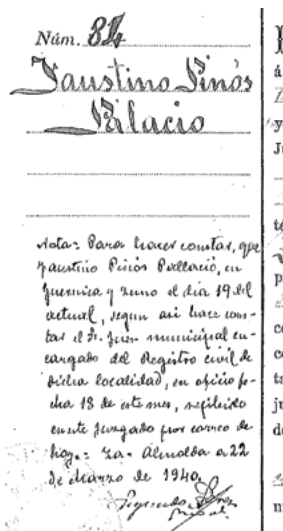 Núm. 84
Faustino Pinós
Pilacio
Nota = Para hacer constar, que
Faustino Pinós Pallacio, en
Guernica y Luno el día 19 del
actual, segun asi hace cons-
tar el Sr. Juez municipal en-
cargado del Registro civil de
dicha localidad, en oficio fe-
cha 18 de este mes, recibido
en este Juzgado por correo de
hoy.= La Almolda a 22
de Marzo de 1940,